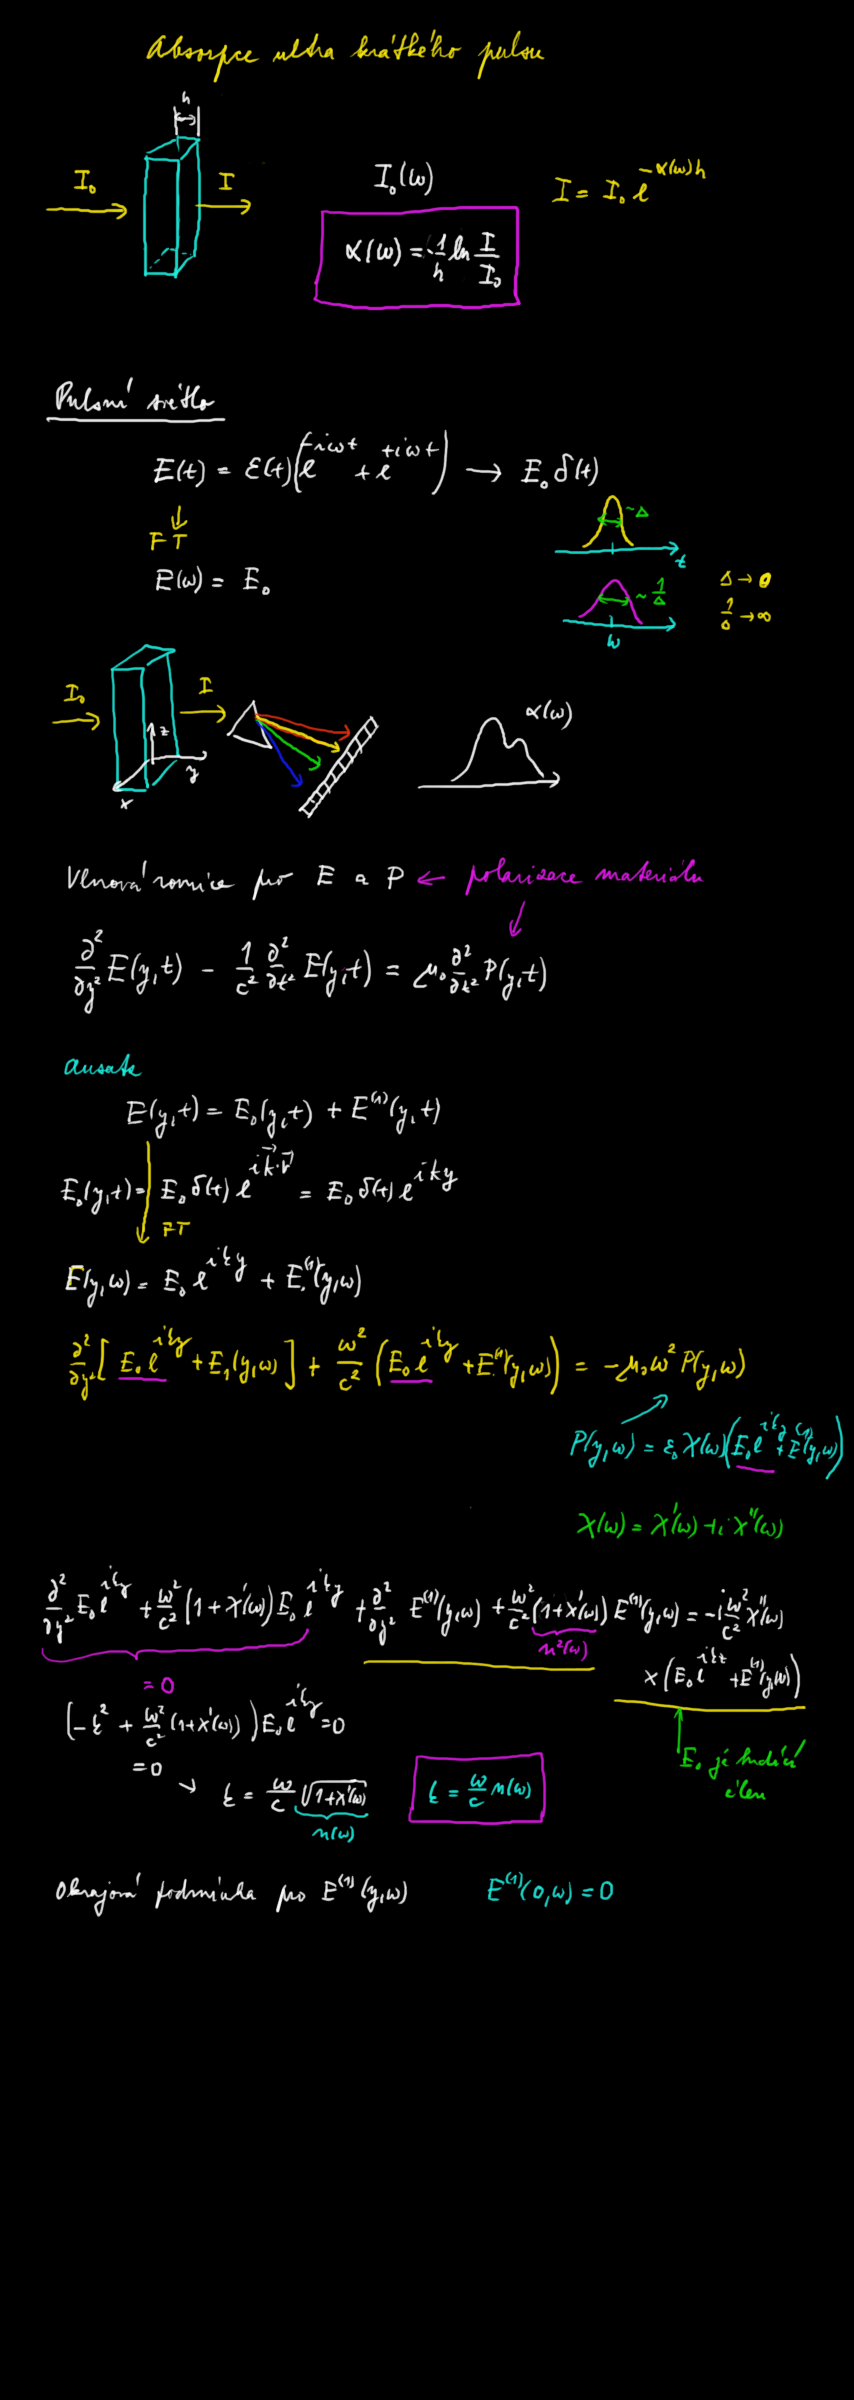 Absorpce ultra krátkého pulsu
h
I₀
I
I₀(ω)
I = I₀ e^{-α(ω)h}
α(ω) = -1/h ln I/I₀
Pulsní světlo
E(t) = ℰ(t)(e^{-iωt} + e^{+iωt}) → E₀ δ(t)
FT
~Δ
t
E(ω) = E₀
~ 1/Δ
ω
Δ → 0
1/Δ → ∞
I₀
I
z
y
x
α(ω)
Vlnová rovnice pro E a P ← polarizace materiálu
∂²/∂y² E(y,t) - 1/c² ∂²/∂t² E(y,t) = μ₀ ∂²/∂t² P(y,t)
ansatz
E(y,t) = E₀(y,t) + E⁽¹⁾(y,t)
E₀(y,t) = E₀ δ(t) e^{i k⃗·r⃗} = E₀ δ(t) e^{iky}
FT
E(y,ω) = E₀ e^{iky} + E⁽¹⁾(y,ω)
∂²/∂y² [E₀ e^{iky} + E₁(y,ω)] + ω²/c² (E₀ e^{iky} + E⁽¹⁾(y,ω)) = -μ₀ω² P(y,ω)
P(y,ω) = ε₀ χ(ω)(E₀ e^{iky} + E⁽¹⁾(y,ω))
χ(ω) = χ'(ω) + i χ''(ω)
∂²/∂y² E₀ e^{iky} + ω²/c² (1+χ'(ω)) E₀ e^{iky} + ∂²/∂y² E⁽¹⁾(y,ω) + ω²/c² (1+χ'(ω)) E⁽¹⁾(y,ω) = -i ω²/c² χ''(ω)
n²(ω)
× (E₀ e^{ikz} + E⁽¹⁾(y,ω))
= 0
(-k² + ω²/c² (1+χ'(ω))) E₀ e^{iky} = 0
= 0
E₀ je budící člen
→ k = ω/c √(1+χ'(ω))
n(ω)
k = ω/c n(ω)
Okrajová podmínka pro E⁽¹⁾(y,ω)
E⁽¹⁾(0,ω) = 0